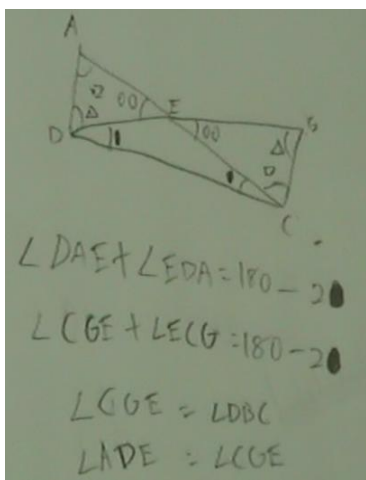 A
E
B
D
C
∠DAE+∠EDA=180-2●
∠CGE+∠ECG=180-2●
∠CGE = ∠DBC
∠ADE = ∠CGE